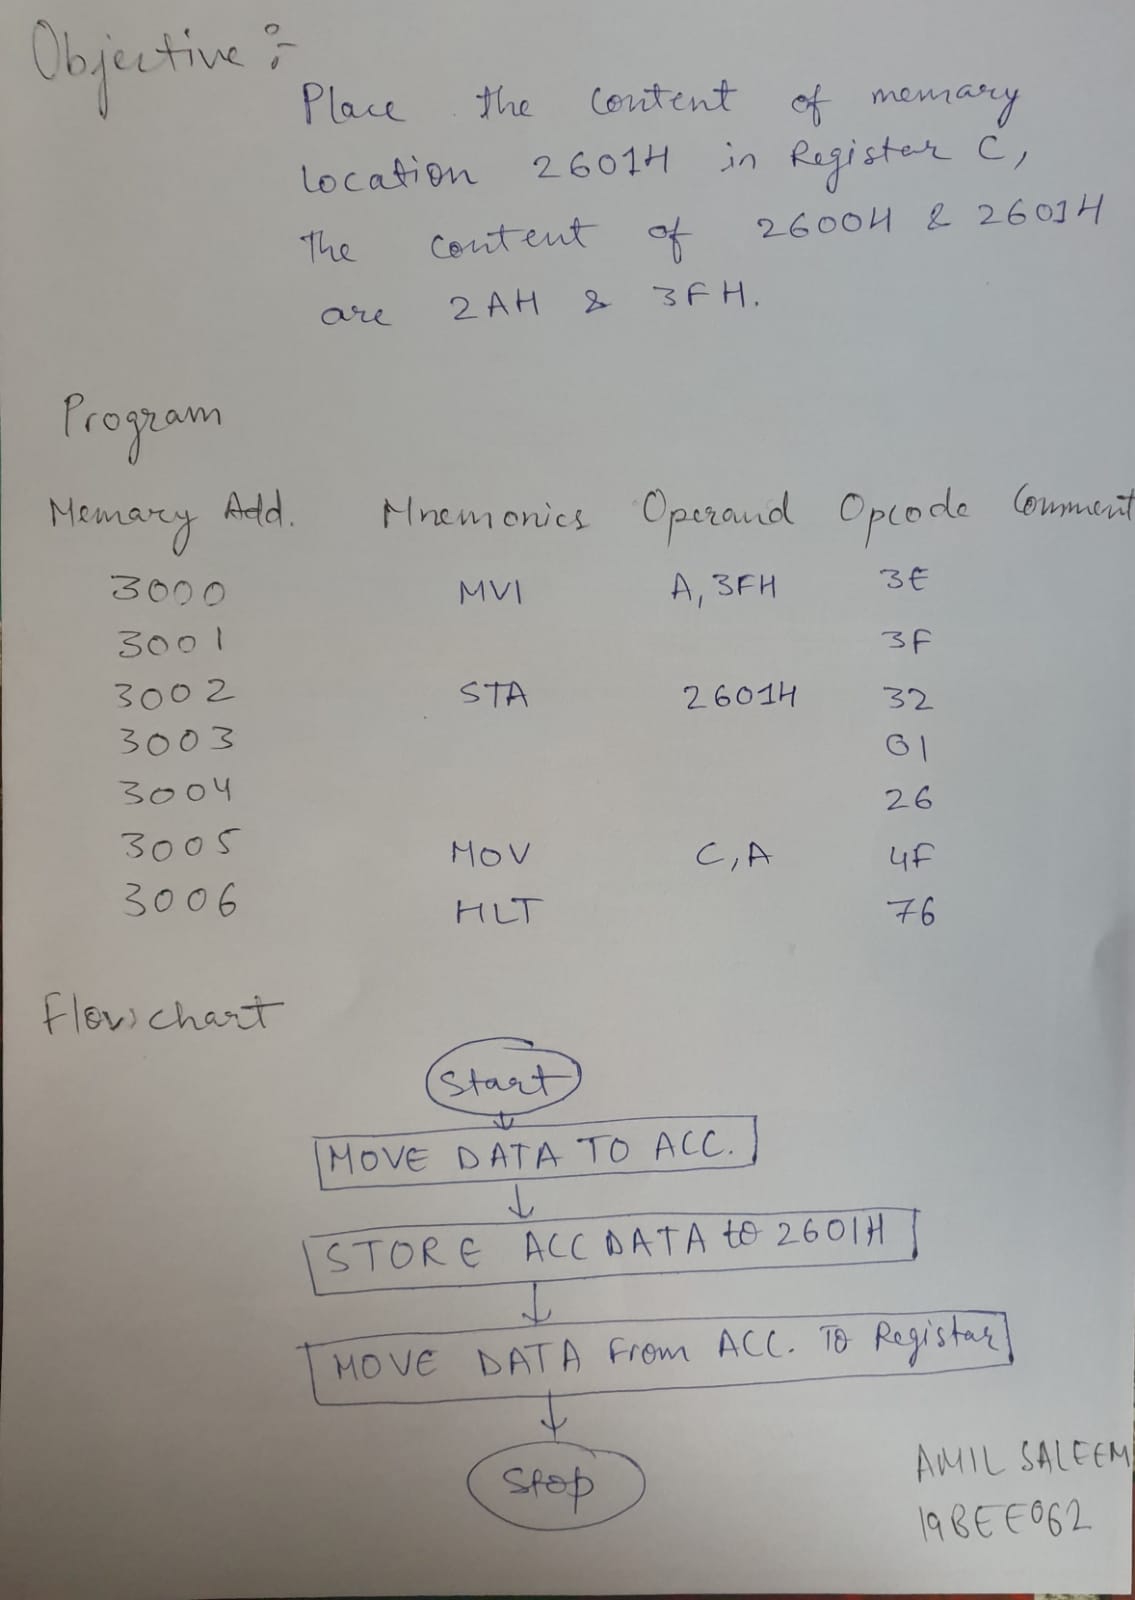 Objective :-
Place the content of memary
location 2601H in Registar C,
The content of 2600H & 2601H
are 2AH & 3FH.
Program
Memary Add. Mnemonics Operand Opcode Comment
3000 MVI A, 3FH 3E
3001 3F
3002 STA 2601H 32
3003 01
3004 26
3005 MOV C, A 4F
3006 HLT 76
Flowchart
Start
MOVE DATA TO ACC.
STORE ACC DATA to 2601H
MOVE DATA From ACC. TO Registar
Stop
AMIL SALEEM
19BEE062